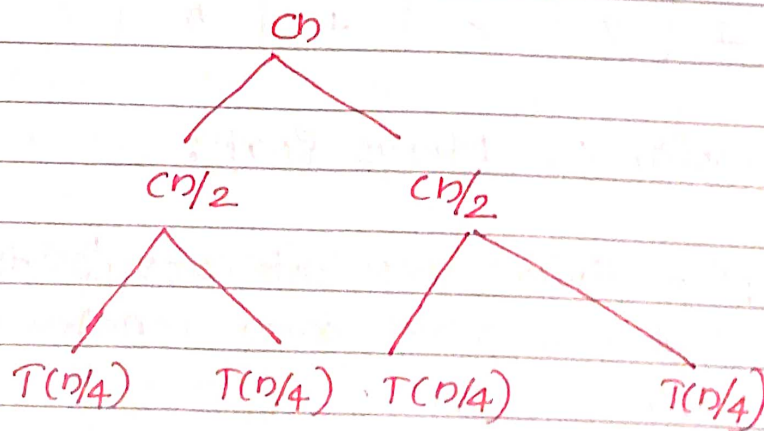 Cn
Cn/2 Cn/2
T(n/4) T(n/4) T(n/4) T(n/4)